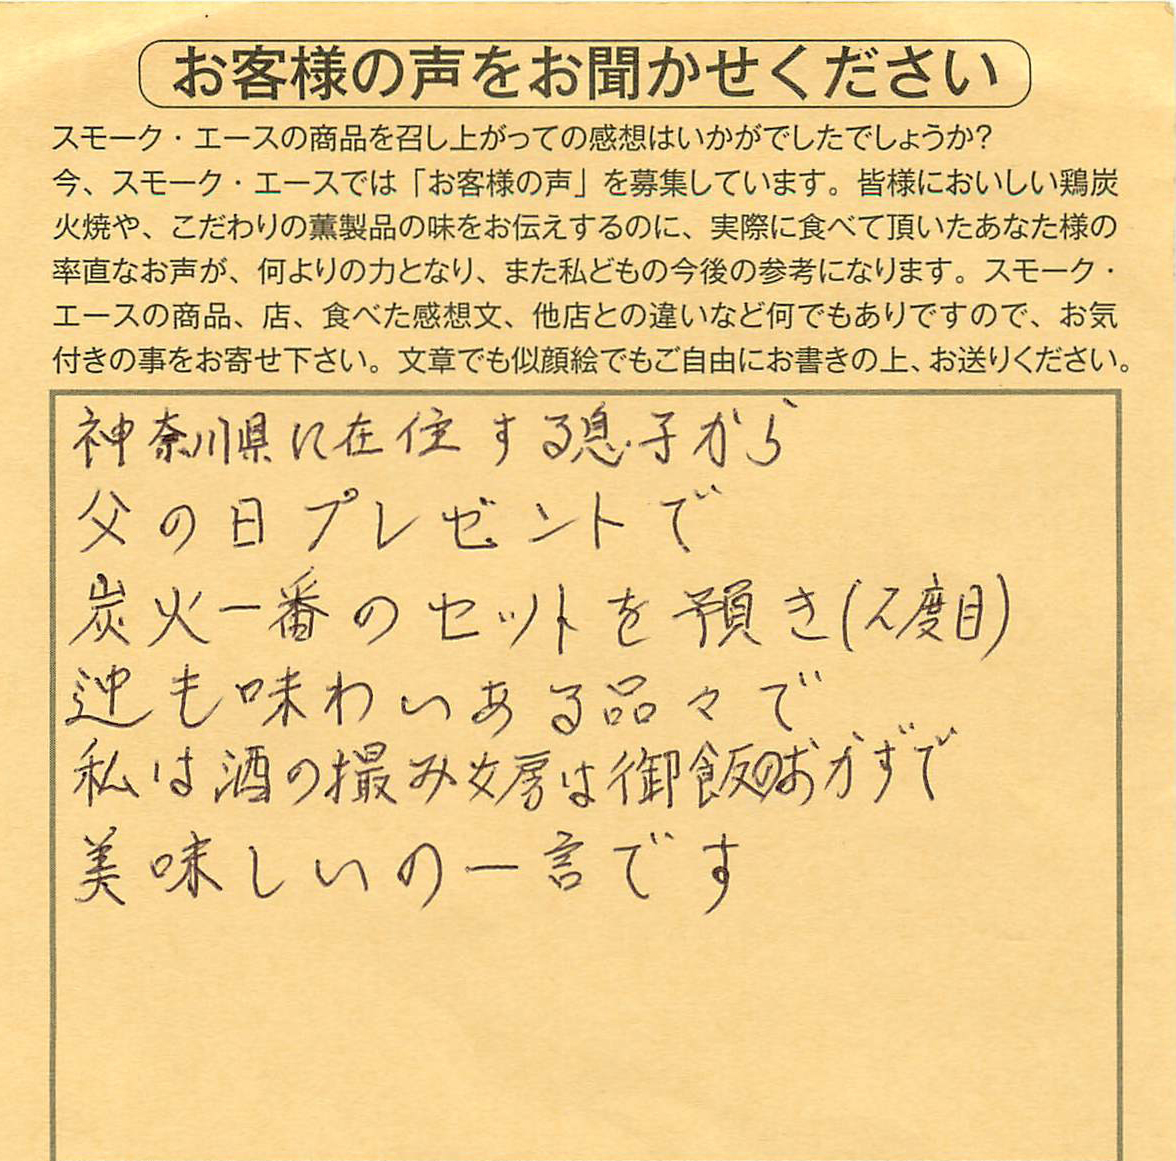 お客様の声をお聞かせください
スモーク・エースの商品を召し上がっての感想はいかがでしたでしょうか?
今、スモーク・エースでは「お客様の声」を募集しています。皆様においしい鶏炭
火焼や、こだわりの薫製品の味をお伝えするのに、実際に食べて頂いたあなた様の
率直なお声が、何よりの力となり、また私どもの今後の参考になります。スモーク・
エースの商品、店、食べた感想文、他店との違いなど何でもありですので、お気
付きの事をお寄せ下さい。文章でも似顔絵でもご自由にお書きの上、お送りください。
神奈川県に在住する息子から
父の日プレゼントで
炭火一番のセットを預き(2度目)
迚も味わいある品々で
私は酒の撮み女房は御飯のおかずで
美味しいの一言です